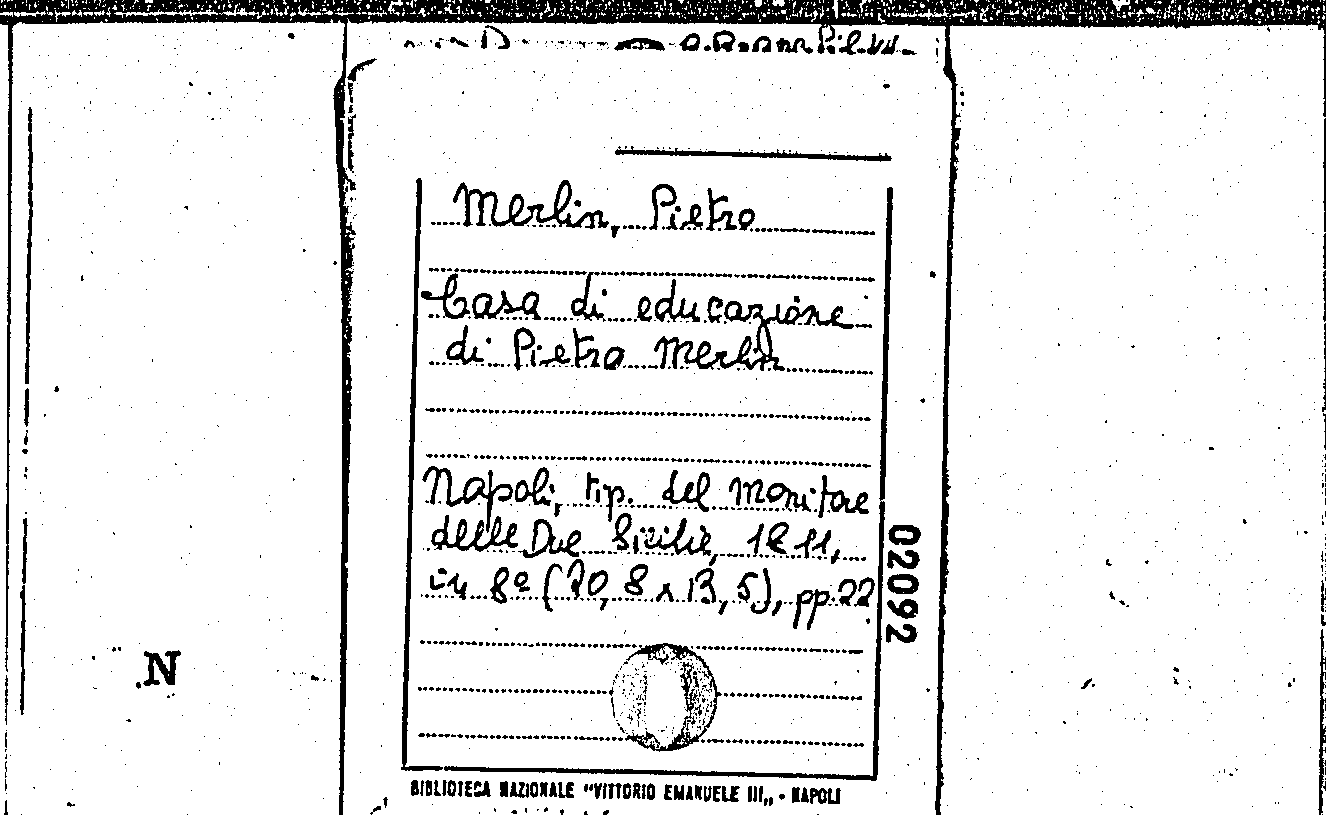 Merlin, Pietro
Casa di educazione
di Pietro Merlin
Napoli, tip. del Monitore
delle Due Sicilie, 1811,
in 8º (20,8 x 13,5), pp. 22
02092
N
BIBLIOTECA NAZIONALE "VITTORIO EMANUELE III„ - NAPOLI